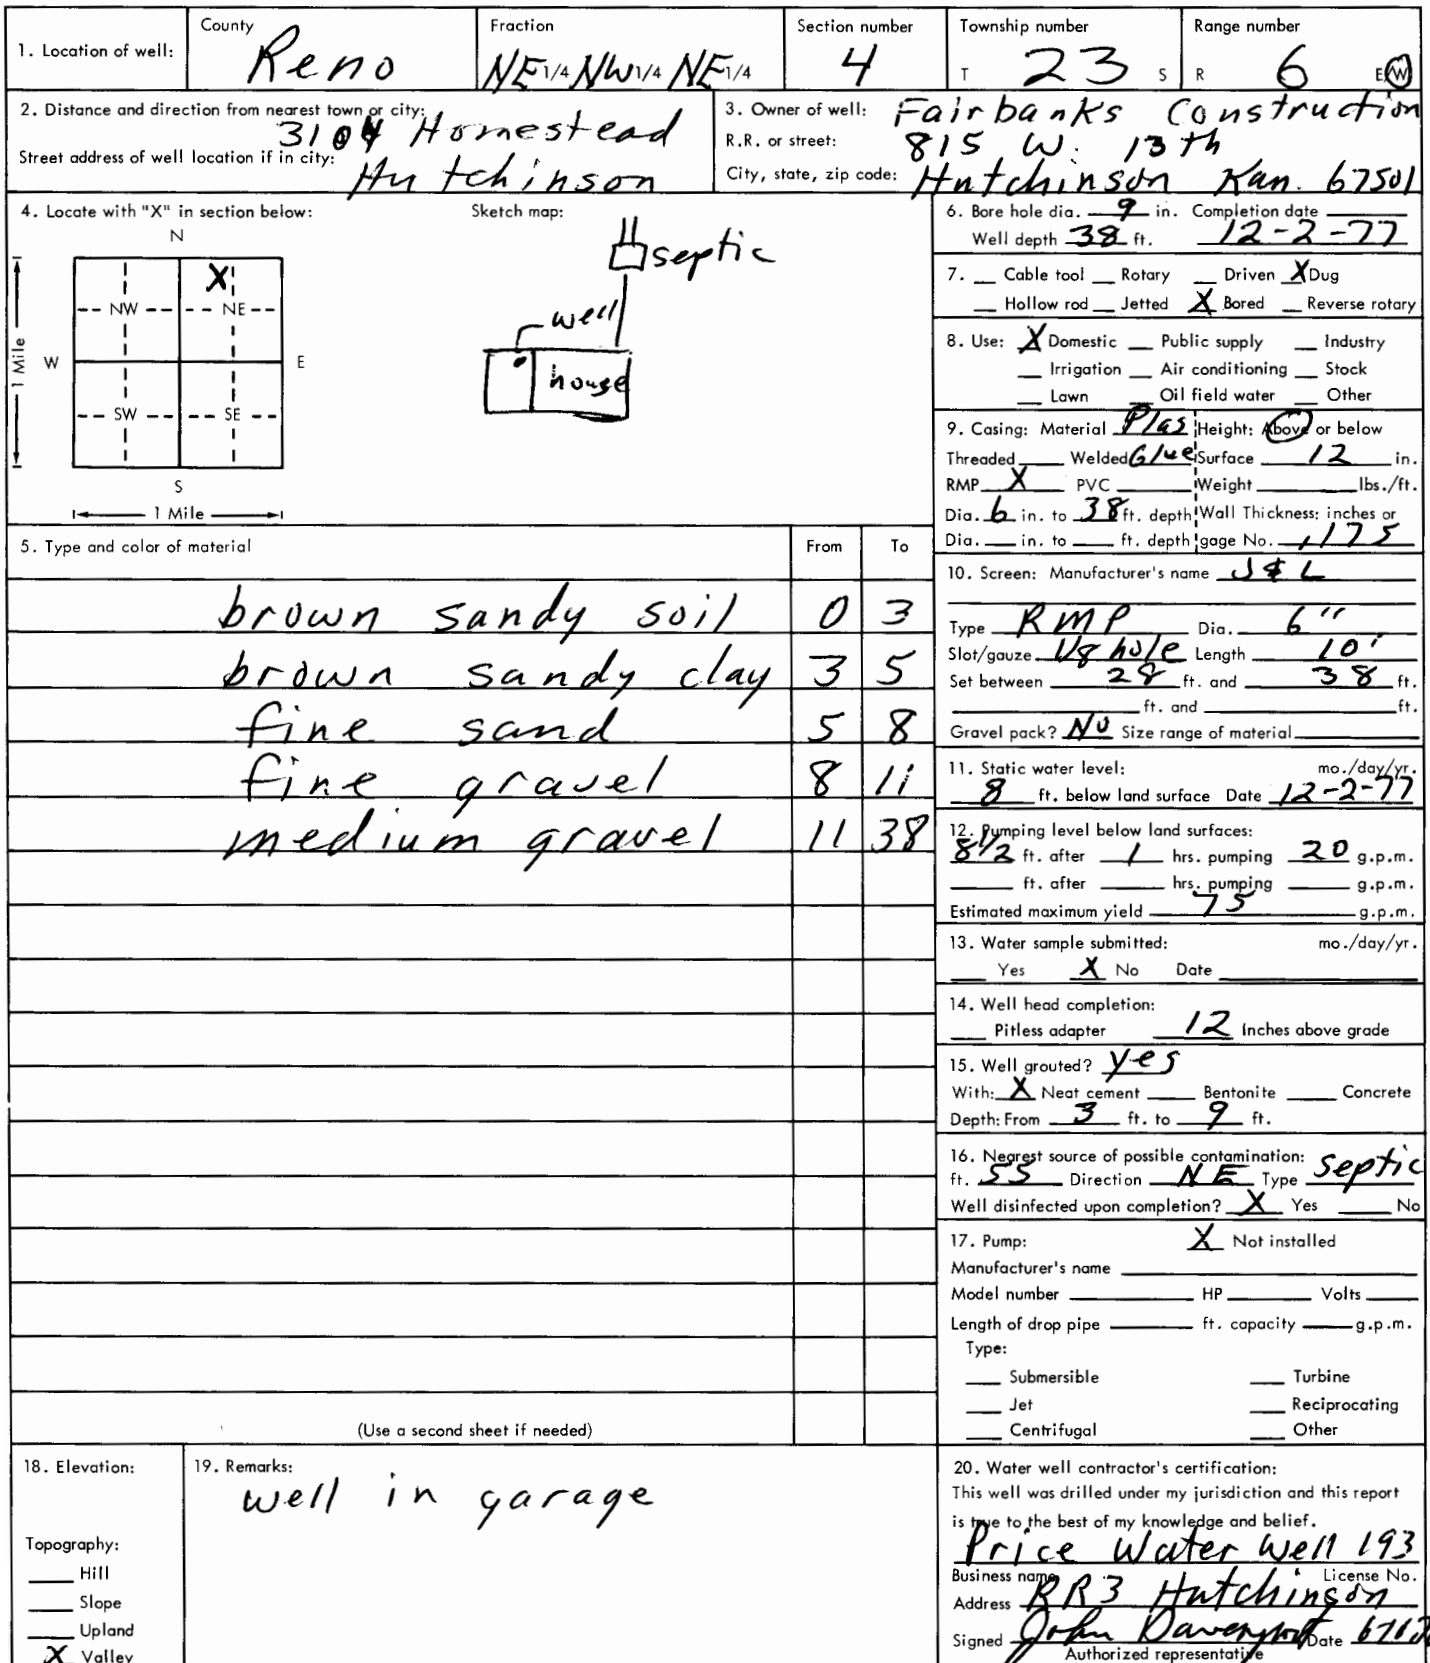 1. Location of well: County Reno Fraction NE 1/4 NW 1/4 NE 1/4 Section number 4 Township number T 23 S Range number R 6 E/W
2. Distance and direction from nearest town or city: 3104 Homestead
Street address of well location if in city: Hutchinson
3. Owner of well: Fairbanks Construction
R.R. or street: 815 W. 13th
City, state, zip code: Hutchinson Kan. 67501
4. Locate with "X" in section below:
N
X
NW NE
W E
SW SE
S
1 Mile
1 Mile
Sketch map:
septic
well
house
5. Type and color of material From To
brown sandy soil 0 3
brown sandy clay 3 5
fine sand 5 8
fine gravel 8 11
medium gravel 11 38
(Use a second sheet if needed)
6. Bore hole dia. 9 in. Completion date
Well depth 38 ft. 12-2-77
7. __ Cable tool __ Rotary __ Driven X Dug
__ Hollow rod __ Jetted X Bored __ Reverse rotary
8. Use: X Domestic __ Public supply __ Industry
__ Irrigation __ Air conditioning __ Stock
__ Lawn __ Oil field water __ Other
9. Casing: Material Plas Height: Above or below
Threaded __ Welded Glue Surface 12 in.
RMP X PVC __ Weight __ lbs./ft.
Dia. 6 in. to 38 ft. depth Wall Thickness: inches or
Dia. __ in. to __ ft. depth gage No. .175
10. Screen: Manufacturer's name J & L
Type RMP Dia. 6"
Slot/gauze 1/8 hole Length 10'
Set between 28 ft. and 38 ft.
__ ft. and __ ft.
Gravel pack? No Size range of material __
11. Static water level: mo./day/yr.
8 ft. below land surface Date 12-2-77
12. Pumping level below land surfaces:
8 1/2 ft. after 1 hrs. pumping 20 g.p.m.
__ ft. after __ hrs. pumping __ g.p.m.
Estimated maximum yield 75 g.p.m.
13. Water sample submitted: mo./day/yr.
__ Yes X No Date __
14. Well head completion:
__ Pitless adapter 12 Inches above grade
15. Well grouted? yes
With: X Neat cement __ Bentonite __ Concrete
Depth: From 3 ft. to 9 ft.
16. Nearest source of possible contamination:
ft. 55 Direction NE Type septic
Well disinfected upon completion? X Yes __ No
17. Pump: X Not installed
Manufacturer's name __
Model number __ HP __ Volts __
Length of drop pipe __ ft. capacity __ g.p.m.
Type:
__ Submersible __ Turbine
__ Jet __ Reciprocating
__ Centrifugal __ Other
18. Elevation:
Topography:
__ Hill
__ Slope
__ Upland
X Valley
19. Remarks:
well in garage
20. Water well contractor's certification:
This well was drilled under my jurisdiction and this report
is true to the best of my knowledge and belief.
Price Water Well 193
Business name License No.
Address RR3 Hutchinson
Signed John Davenport Date
Authorized representative